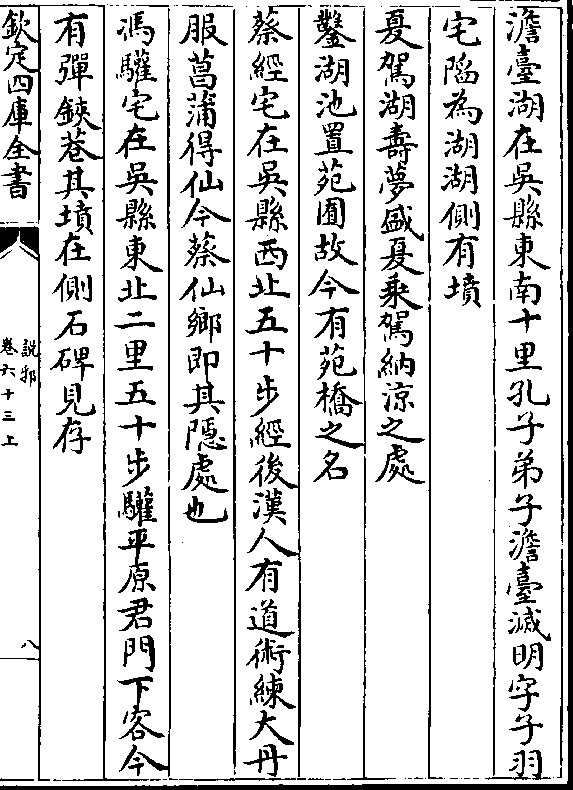 澹臺湖在吳縣東南十里孔子弟子澹臺滅明字子羽
宅陷為湖湖側有墳
夏駕湖壽夢盛夏乘駕納涼之處
鑿湖池置苑囿故今有苑橋之名
蔡經宅在吳縣西北五十步經後漢人有道術練大丹
服菖蒲得仙今蔡仙鄉即其隱處也
馮驩宅在吳縣東北二里五十步驩平原君門下客今
有彈鋏巷其墳在側石碑見存
欽定四庫全書
說郛
卷六十三上
八